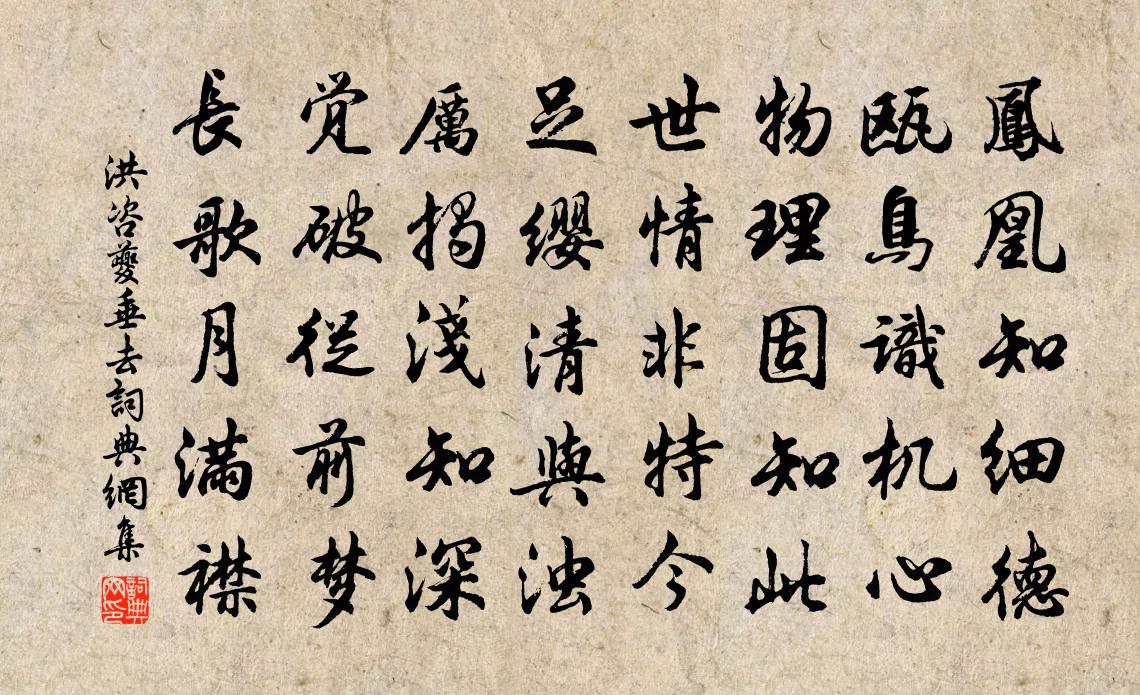 鳳凰知細德
瓯鳥識机心
物理固知此
世情非特今
足纓清與浊
厲揭淺知深
覚破從前梦
長歌月満襟
洪咨夔垂去詞典網集
詞典网印